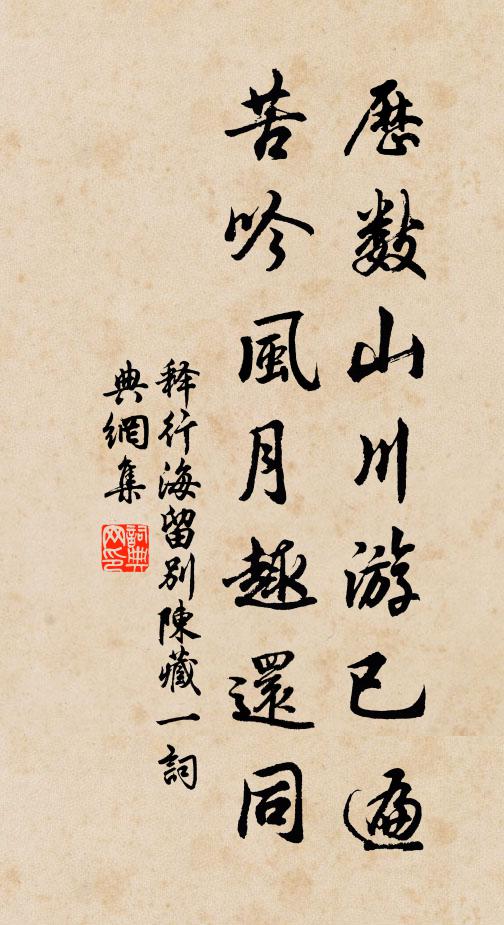 歷數山川游已遍
苦吟風月趣還同
释行海留別陳藏一詞
典網集
詞典網印